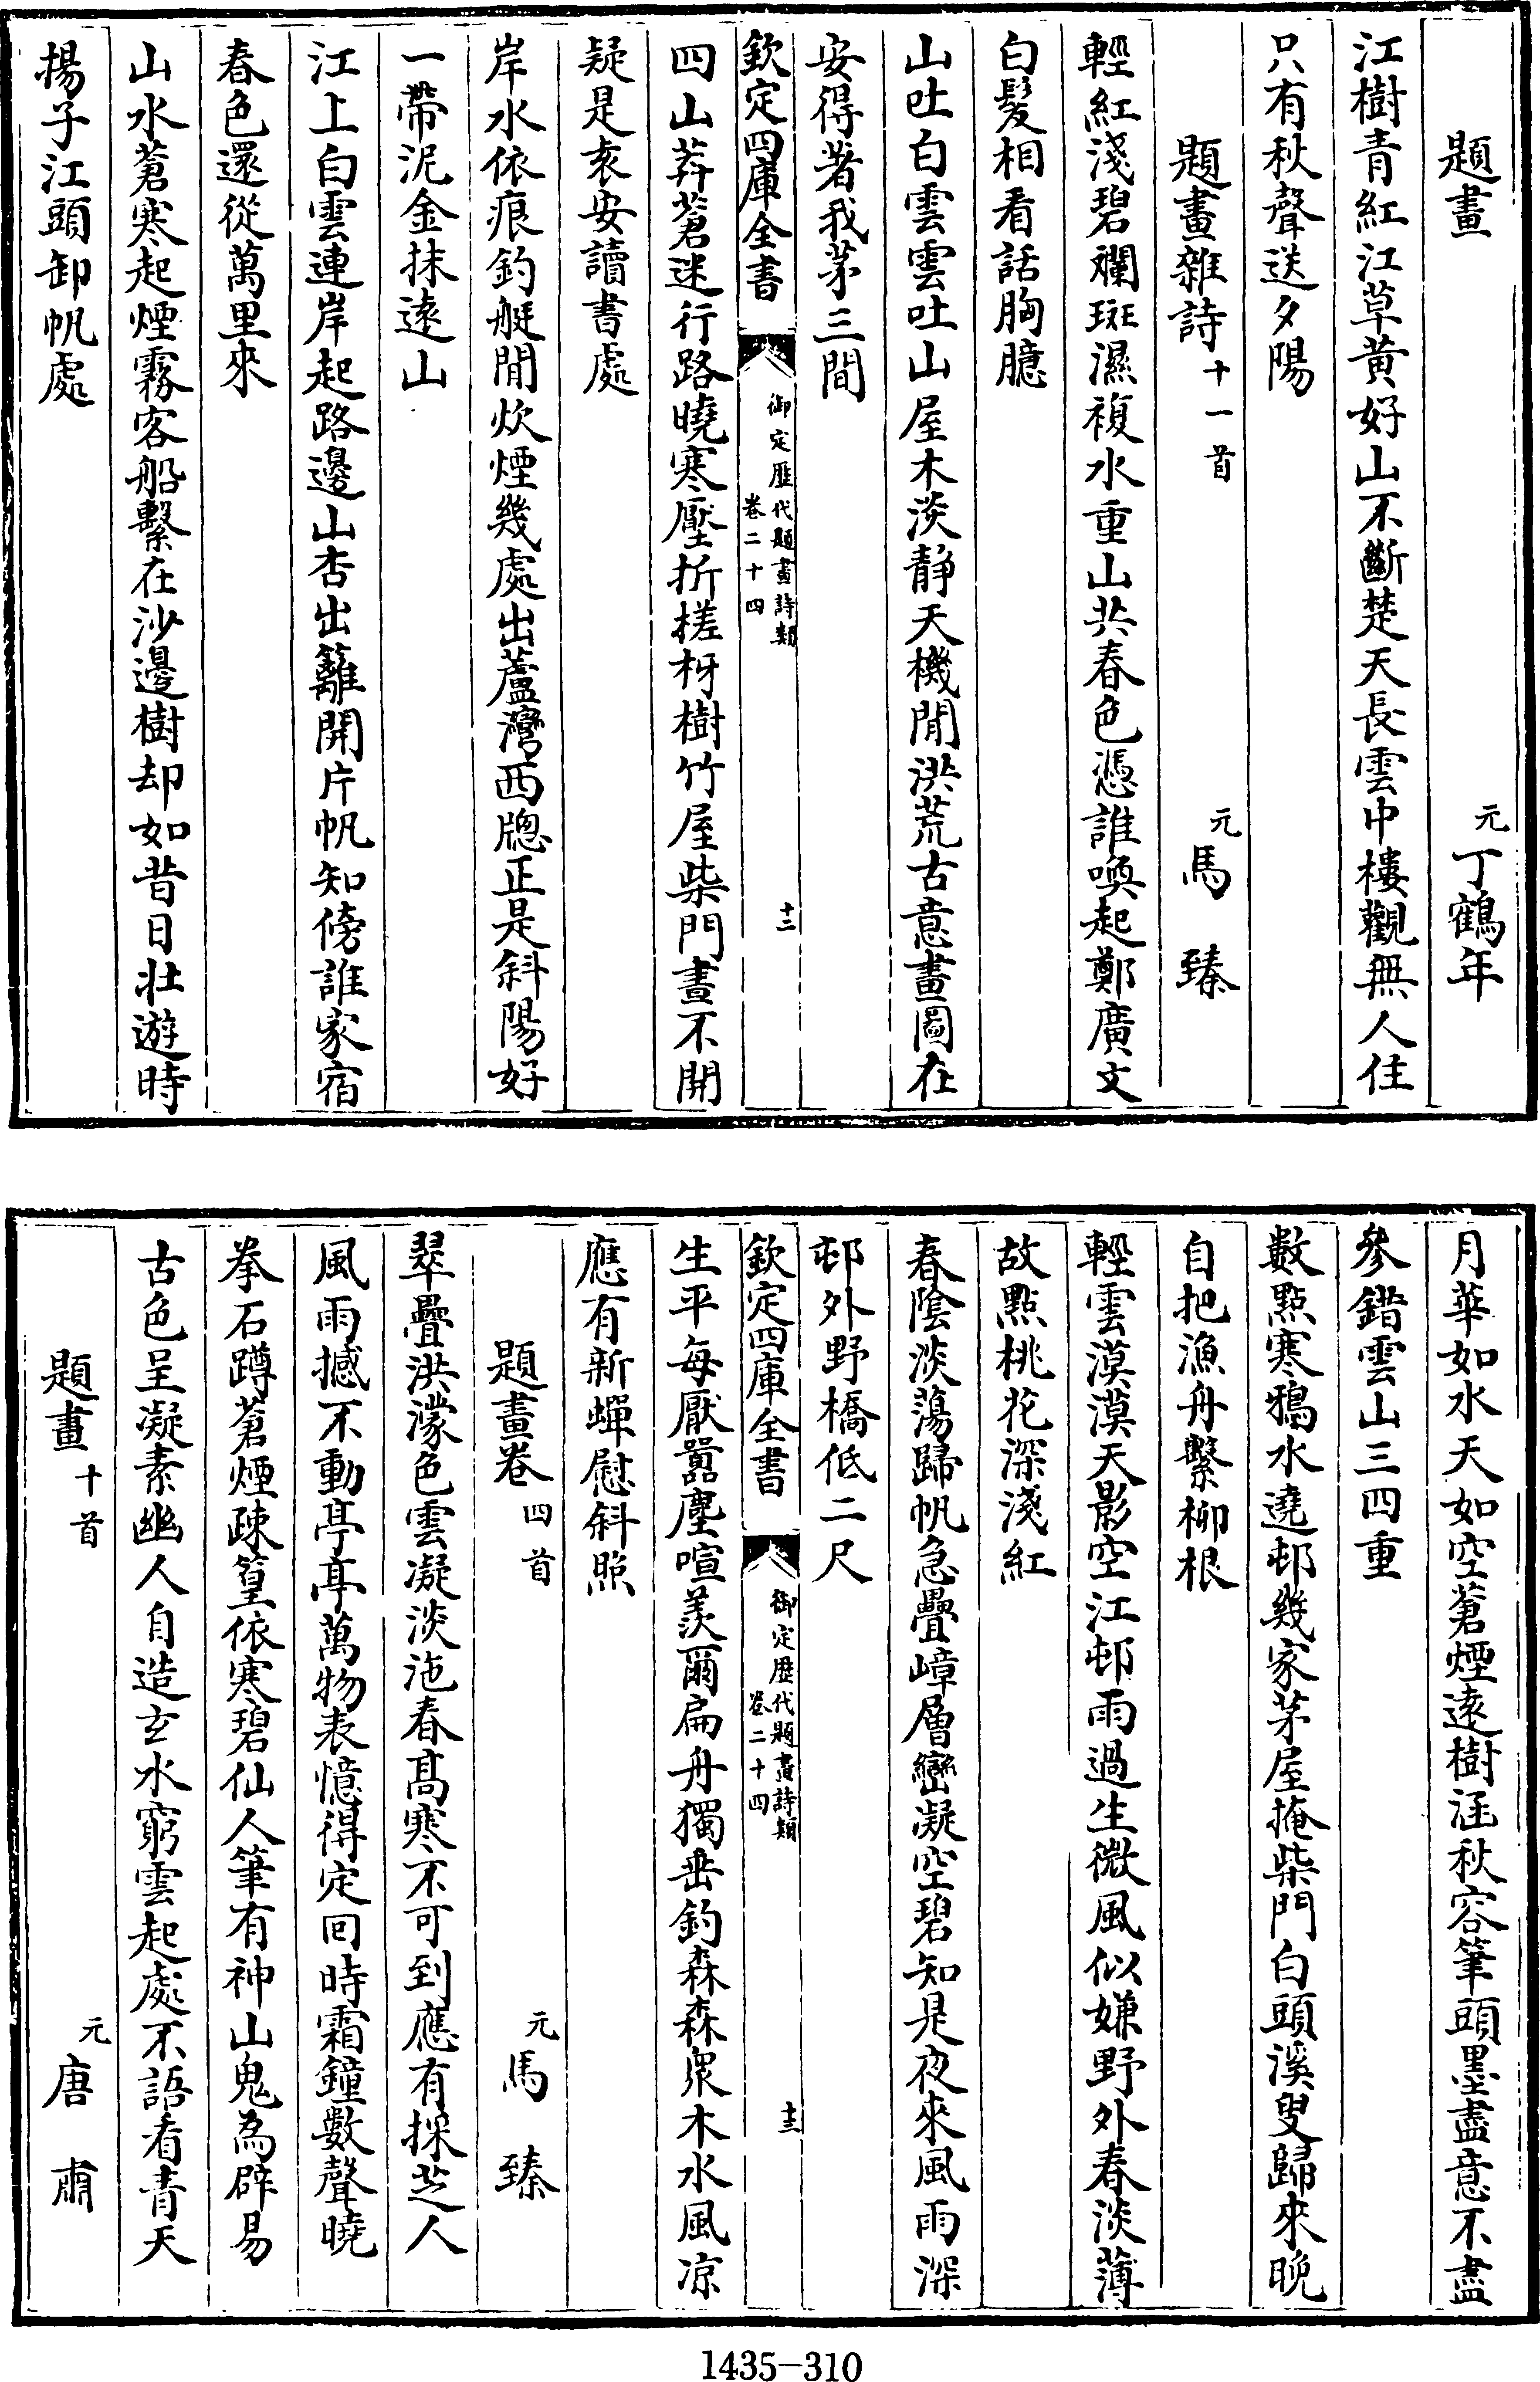 題畫　元丁鶴年
江樹青紅江草黄好山不斷楚天長雲中樓觀無人住
只有秋聲送夕陽
題畫雜詩十一首　元馬臻
輕紅淺碧斕斑濕複水重山共春色憑誰喚起鄭廣文
白髮相看話胸臆
山吐白雲雲吐山屋木淡静天機閒洪荒古意畫圖在
安得著我茅三間
欽定四庫全書　御定歷代題畫詩類卷二十四　十二
四山莽蒼迷行路曉寒壓折槎枒樹竹屋柴門晝不開
疑是袁安讀書處
岸水依痕釣艇閒炊煙幾處出蘆灣西牕正是斜陽好
一帶泥金抹遠山
江上白雲連岸起路邊山杏出籬開片帆知傍誰家宿
春色還從萬里來
山水蒼寒起煙霧客船繫在沙邊樹却如昔日壯遊時
揚子江頭卸帆處
月華如水天如空蒼煙遠樹涵秋容筆頭墨盡意不盡
參錯雲山三四重
數點寒鴉水遶邨幾家茅屋掩柴門白頭溪叟歸來晚
自把漁舟繫柳根
輕雲漠漠天影空江邨雨過生微風似嫌野外春淡薄
故點桃花深淺紅
春陰淡蕩歸帆急疊嶂層巒凝空碧知是夜來風雨深
邨外野橋低二尺
欽定四庫全書　御定歷代題畫詩類卷二十四　十三
生平每厭囂塵喧羨爾扁舟獨垂釣森森衆木水風凉
應有新蟬慰斜照
題畫卷四首　元馬臻
翠疊洪濛色雲凝淡沲春高寒不可到應有採芝人
風雨撼不動亭亭萬物表憶得定回時霜鐘數聲曉
拳石蹲蒼煙疎篁依寒碧仙人筆有神山鬼為辟易
古色呈凝素幽人自造玄水窮雲起處不語看青天
題畫十首　元唐肅
1435-310